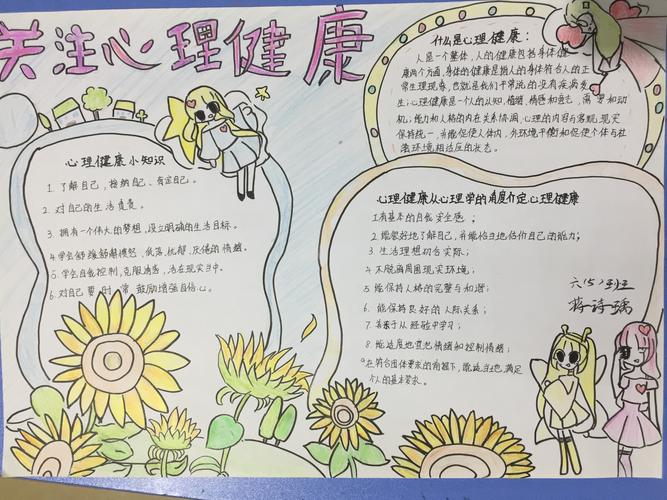 关注心理健康
什么是心理健康：
人是一个整体，人的健康包括身体健
康两个方面，身体的健康是指人的身体符合人的正
常生理现象，也就是我们平常说的没有疾病发
生；心理健康是一个人的认知，情绪，情感和意志，需要和动
机；能力和人格的内在关系协调，心理的内容与客观，现实
保持统一，并能促使人体内，外环境平衡和促使个体与社
会环境相适应的状态。
心理健康小知识
1. 了解自己，接纳自己、肯定自己。
2. 对自己的生活负责。
3. 拥有一个伟大的梦想，设立明确的生活目标。
4. 学会舒缓排解愤怒、低落、忧郁、厌倦的情绪。
5. 学会自我控制，克服沮丧，活在现实当中。
6. 对自己要时常鼓励增强自信心。
心理健康从心理学的角度介定心理健康
1. 有基本的自我安全感。
2. 能很好地了解自己，并能恰当地估价自己的能力；
3. 生活理想切合实际；
4. 不脱离周围现实环境；
5. 能保持人格的完整与和谐；
6. 能保持良好的人际关系；
7. 善于从经验中学习；
8. 能适度地宣泄情绪和控制情绪；
9. 在符合团体要求的前提下，能适当地满足
个人的基本要求。
六（5）班
蒋诗瑀